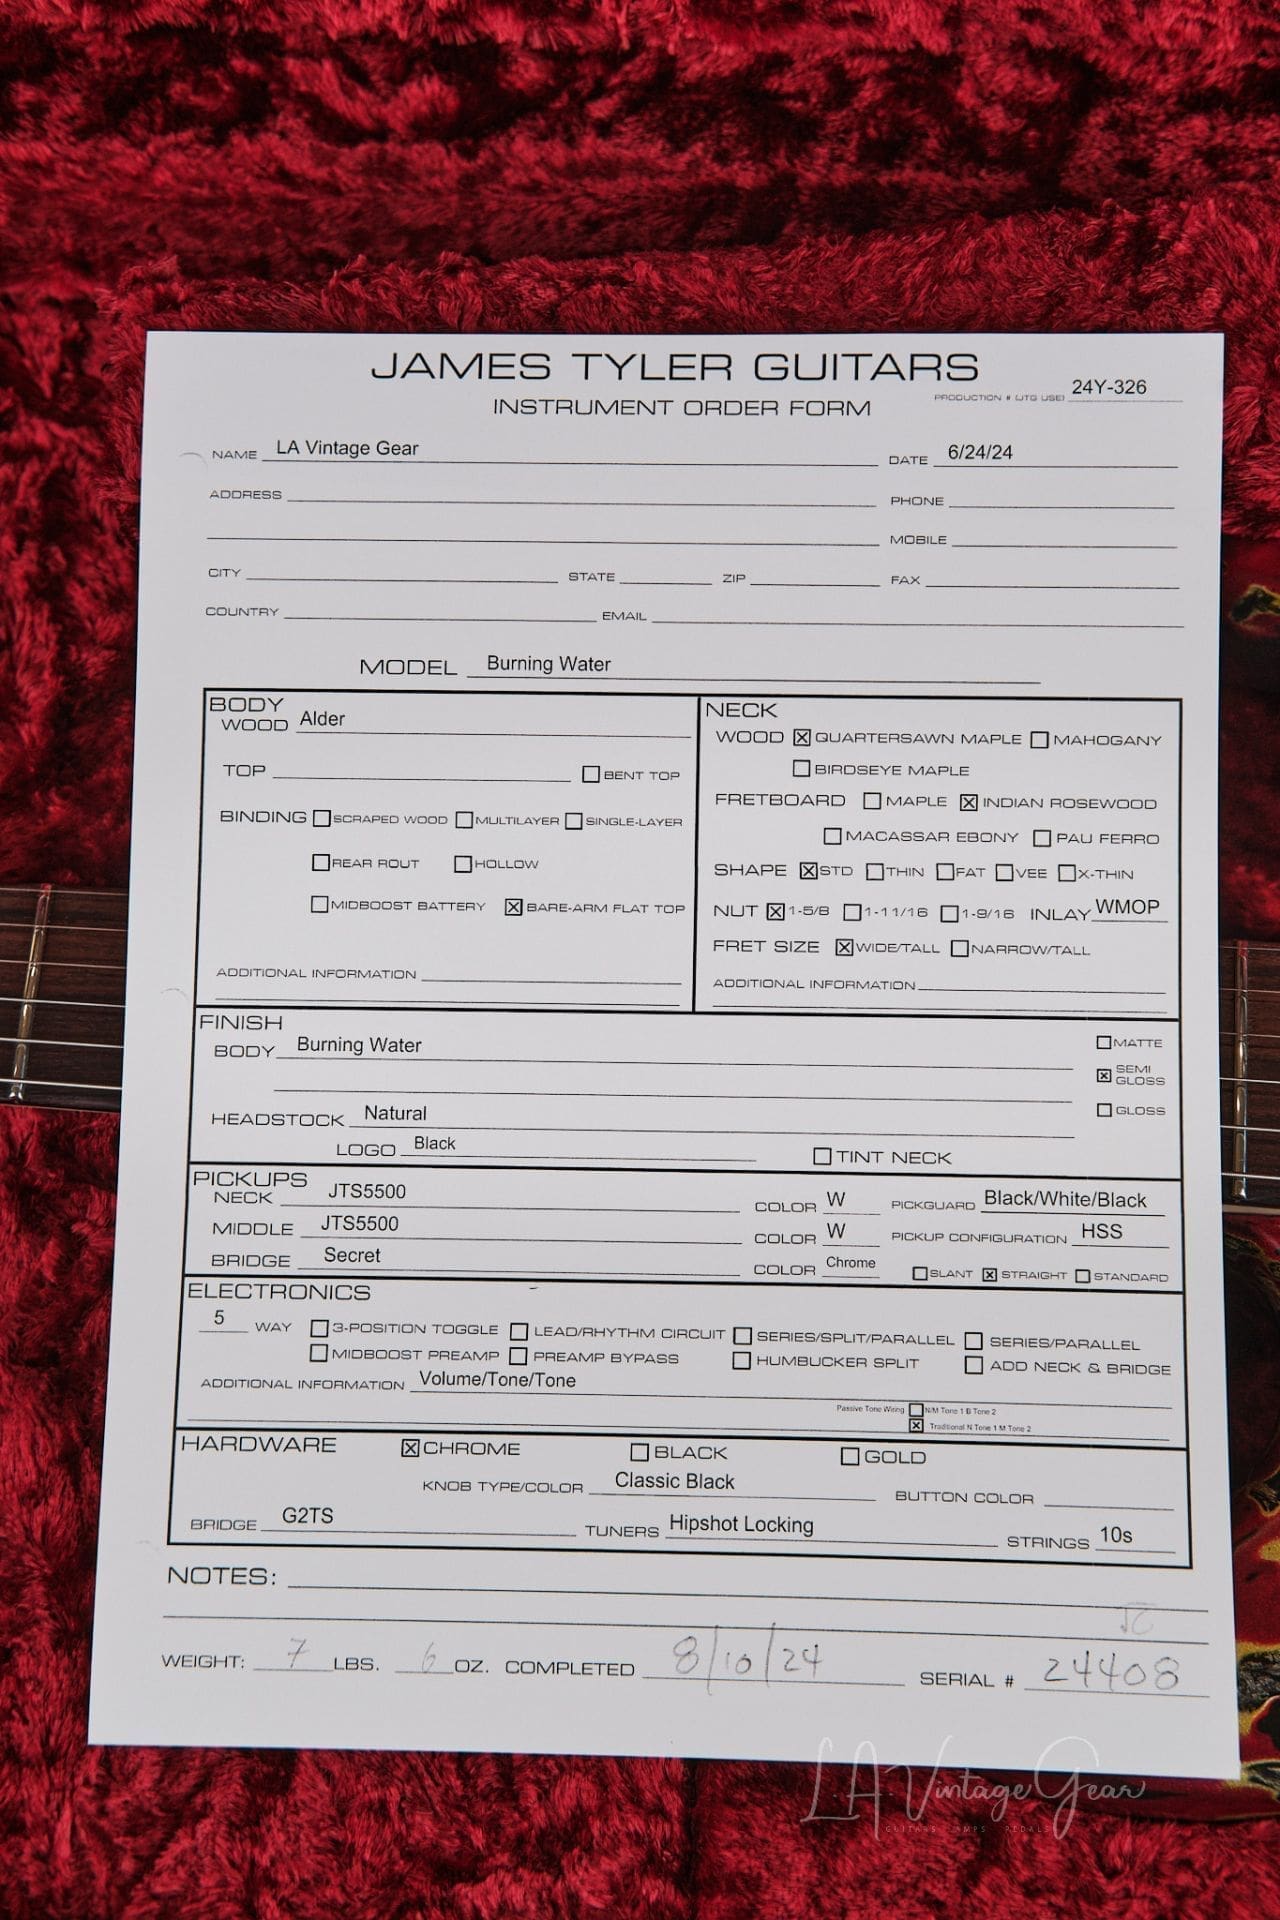 JAMES TYLER GUITARS
INSTRUMENT ORDER FORM
PRODUCTION # (JTG USE) 24Y-326
NAME LA Vintage Gear DATE 6/24/24
ADDRESS PHONE
MOBILE
CITY STATE ZIP FAX
COUNTRY EMAIL
MODEL Burning Water
BODY
WOOD Alder
TOP ☐ BENT TOP
BINDING ☐ SCRAPED WOOD ☐ MULTILAYER ☐ SINGLE-LAYER
☐ REAR ROUT ☐ HOLLOW
☐ MIDBOOST BATTERY ☒ BARE-ARM FLAT TOP
ADDITIONAL INFORMATION
NECK
WOOD ☒ QUARTERSAWN MAPLE ☐ MAHOGANY
☐ BIRDSEYE MAPLE
FRETBOARD ☐ MAPLE ☒ INDIAN ROSEWOOD
☐ MACASSAR EBONY ☐ PAU FERRO
SHAPE ☒ STD ☐ THIN ☐ FAT ☐ VEE ☐ X-THIN
NUT ☒ 1-5/8 ☐ 1-11/16 ☐ 1-9/16 INLAY WMOP
FRET SIZE ☒ WIDE/TALL ☐ NARROW/TALL
ADDITIONAL INFORMATION
FINISH
BODY Burning Water
☐ MATTE
☒ SEMI GLOSS
☐ GLOSS
HEADSTOCK Natural
LOGO Black ☐ TINT NECK
PICKUPS
NECK JTS5500 COLOR W PICKGUARD Black/White/Black
MIDDLE JTS5500 COLOR W PICKUP CONFIGURATION HSS
BRIDGE Secret COLOR Chrome ☐ SLANT ☒ STRAIGHT ☐ STANDARD
ELECTRONICS
5 WAY ☐ 3-POSITION TOGGLE ☐ LEAD/RHYTHM CIRCUIT ☐ SERIES/SPLIT/PARALLEL ☐ SERIES/PARALLEL
☐ MIDBOOST PREAMP ☐ PREAMP BYPASS ☐ HUMBUCKER SPLIT ☐ ADD NECK & BRIDGE
ADDITIONAL INFORMATION Volume/Tone/Tone
Passive Tone Wiring ☐ N/M Tone 1 B Tone 2
☒ Traditional N Tone 1 M Tone 2
HARDWARE ☒ CHROME ☐ BLACK ☐ GOLD
KNOB TYPE/COLOR Classic Black BUTTON COLOR
BRIDGE G2TS TUNERS Hipshot Locking STRINGS 10s
NOTES:
WEIGHT: 7 LBS. 6 OZ. COMPLETED 8/10/24 SERIAL # 24408
L.A. Vintage Gear
GUITARS AMPS PEDALS